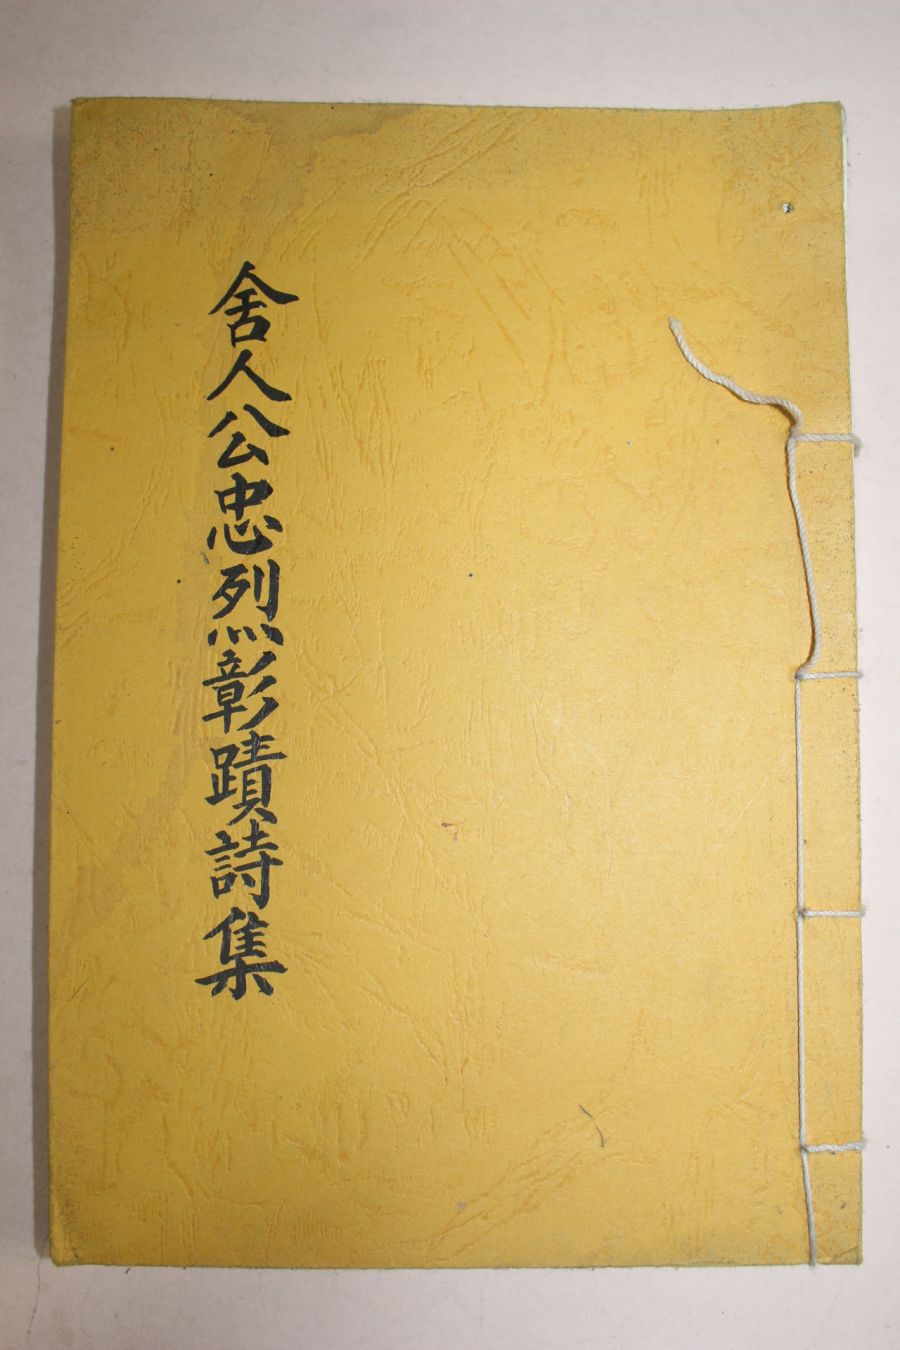 舍人公忠烈彰蹟詩集